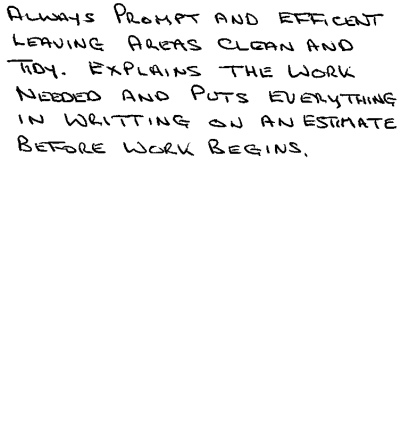 ALWAYS PROMPT AND EFFICENT
LEAVING AREAS CLEAN AND
TIDY. EXPLAINS THE WORK
NEEDED AND PUTS EVERYTHING
IN WRITTING ON AN ESTIMATE
BEFORE WORK BEGINS.